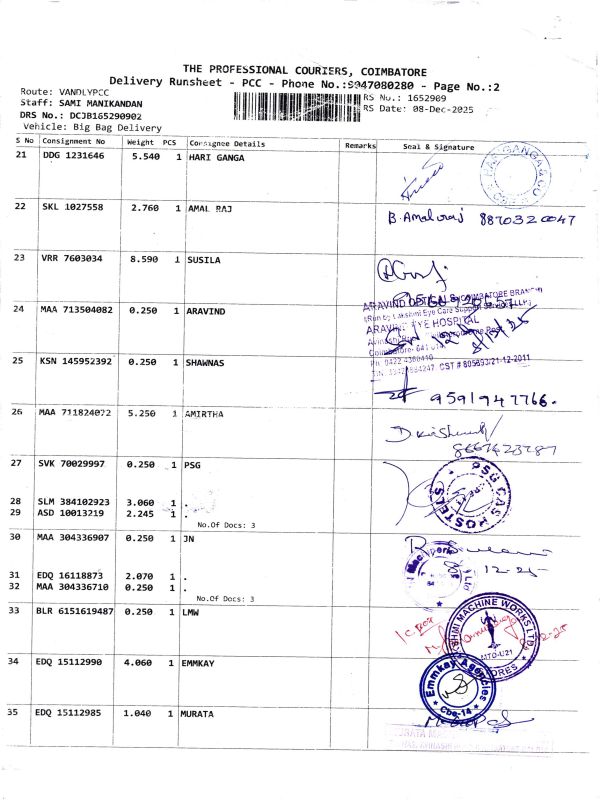 THE PROFESSIONAL COURIERS, COIMBATORE
Delivery Runsheet - PCC - Phone No.:9047080280 - Page No.:2
Route: VANDLYPCC
Staff: SAMI MANIKANDAN
RS No.: 1652909
DRS No.: DCJB165290902
RS Date: 08-Dec-2025
Vehicle: Big Bag Delivery
S No Consignment No Weight PCS Consignee Details Remarks Seal & Signature
21 DDG 1231646 5.540 1 HARI GANGA
22 SKL 1027558 2.760 1 AMAL RAJ
B. Amalraj 8870320047
23 VRR 7603034 8.590 1 SUSILA
24 MAA 713504082 0.250 1 ARAVIND
ARAVIND OPTICALS COIMBATORE BRANCH
(Run by Lakshmi Eye Care Support Services LLP)
ARAVIND EYE HOSPITAL
Coimbatore- 641
Ph: 0422 4360410
CST # 805693/21-12-2011
25 KSN 145952392 0.250 1 SHAWNAS
9591947766.
26 MAA 711824072 5.250 1 AMIRTHA
27 SVK 70029997 0.250 1 PSG
PSG CAS HOSTELS
28 SLM 384102923 3.060 1 .
29 ASD 10013219 2.245 1 .
No.Of Docs: 3
30 MAA 304336907 0.250 1 JN
31 EDQ 16118873 2.070 1 .
12-25
32 MAA 304336710 0.250 1 .
No.Of Docs: 3
33 BLR 6151619487 0.250 1 LMW
LAKSHMI MACHINE WORKS LTD
MTO-U21
34 EDQ 15112990 4.060 1 EMMKAY
Emmkay Agencies
Cbe-14
35 EDQ 15112985 1.040 1 MURATA